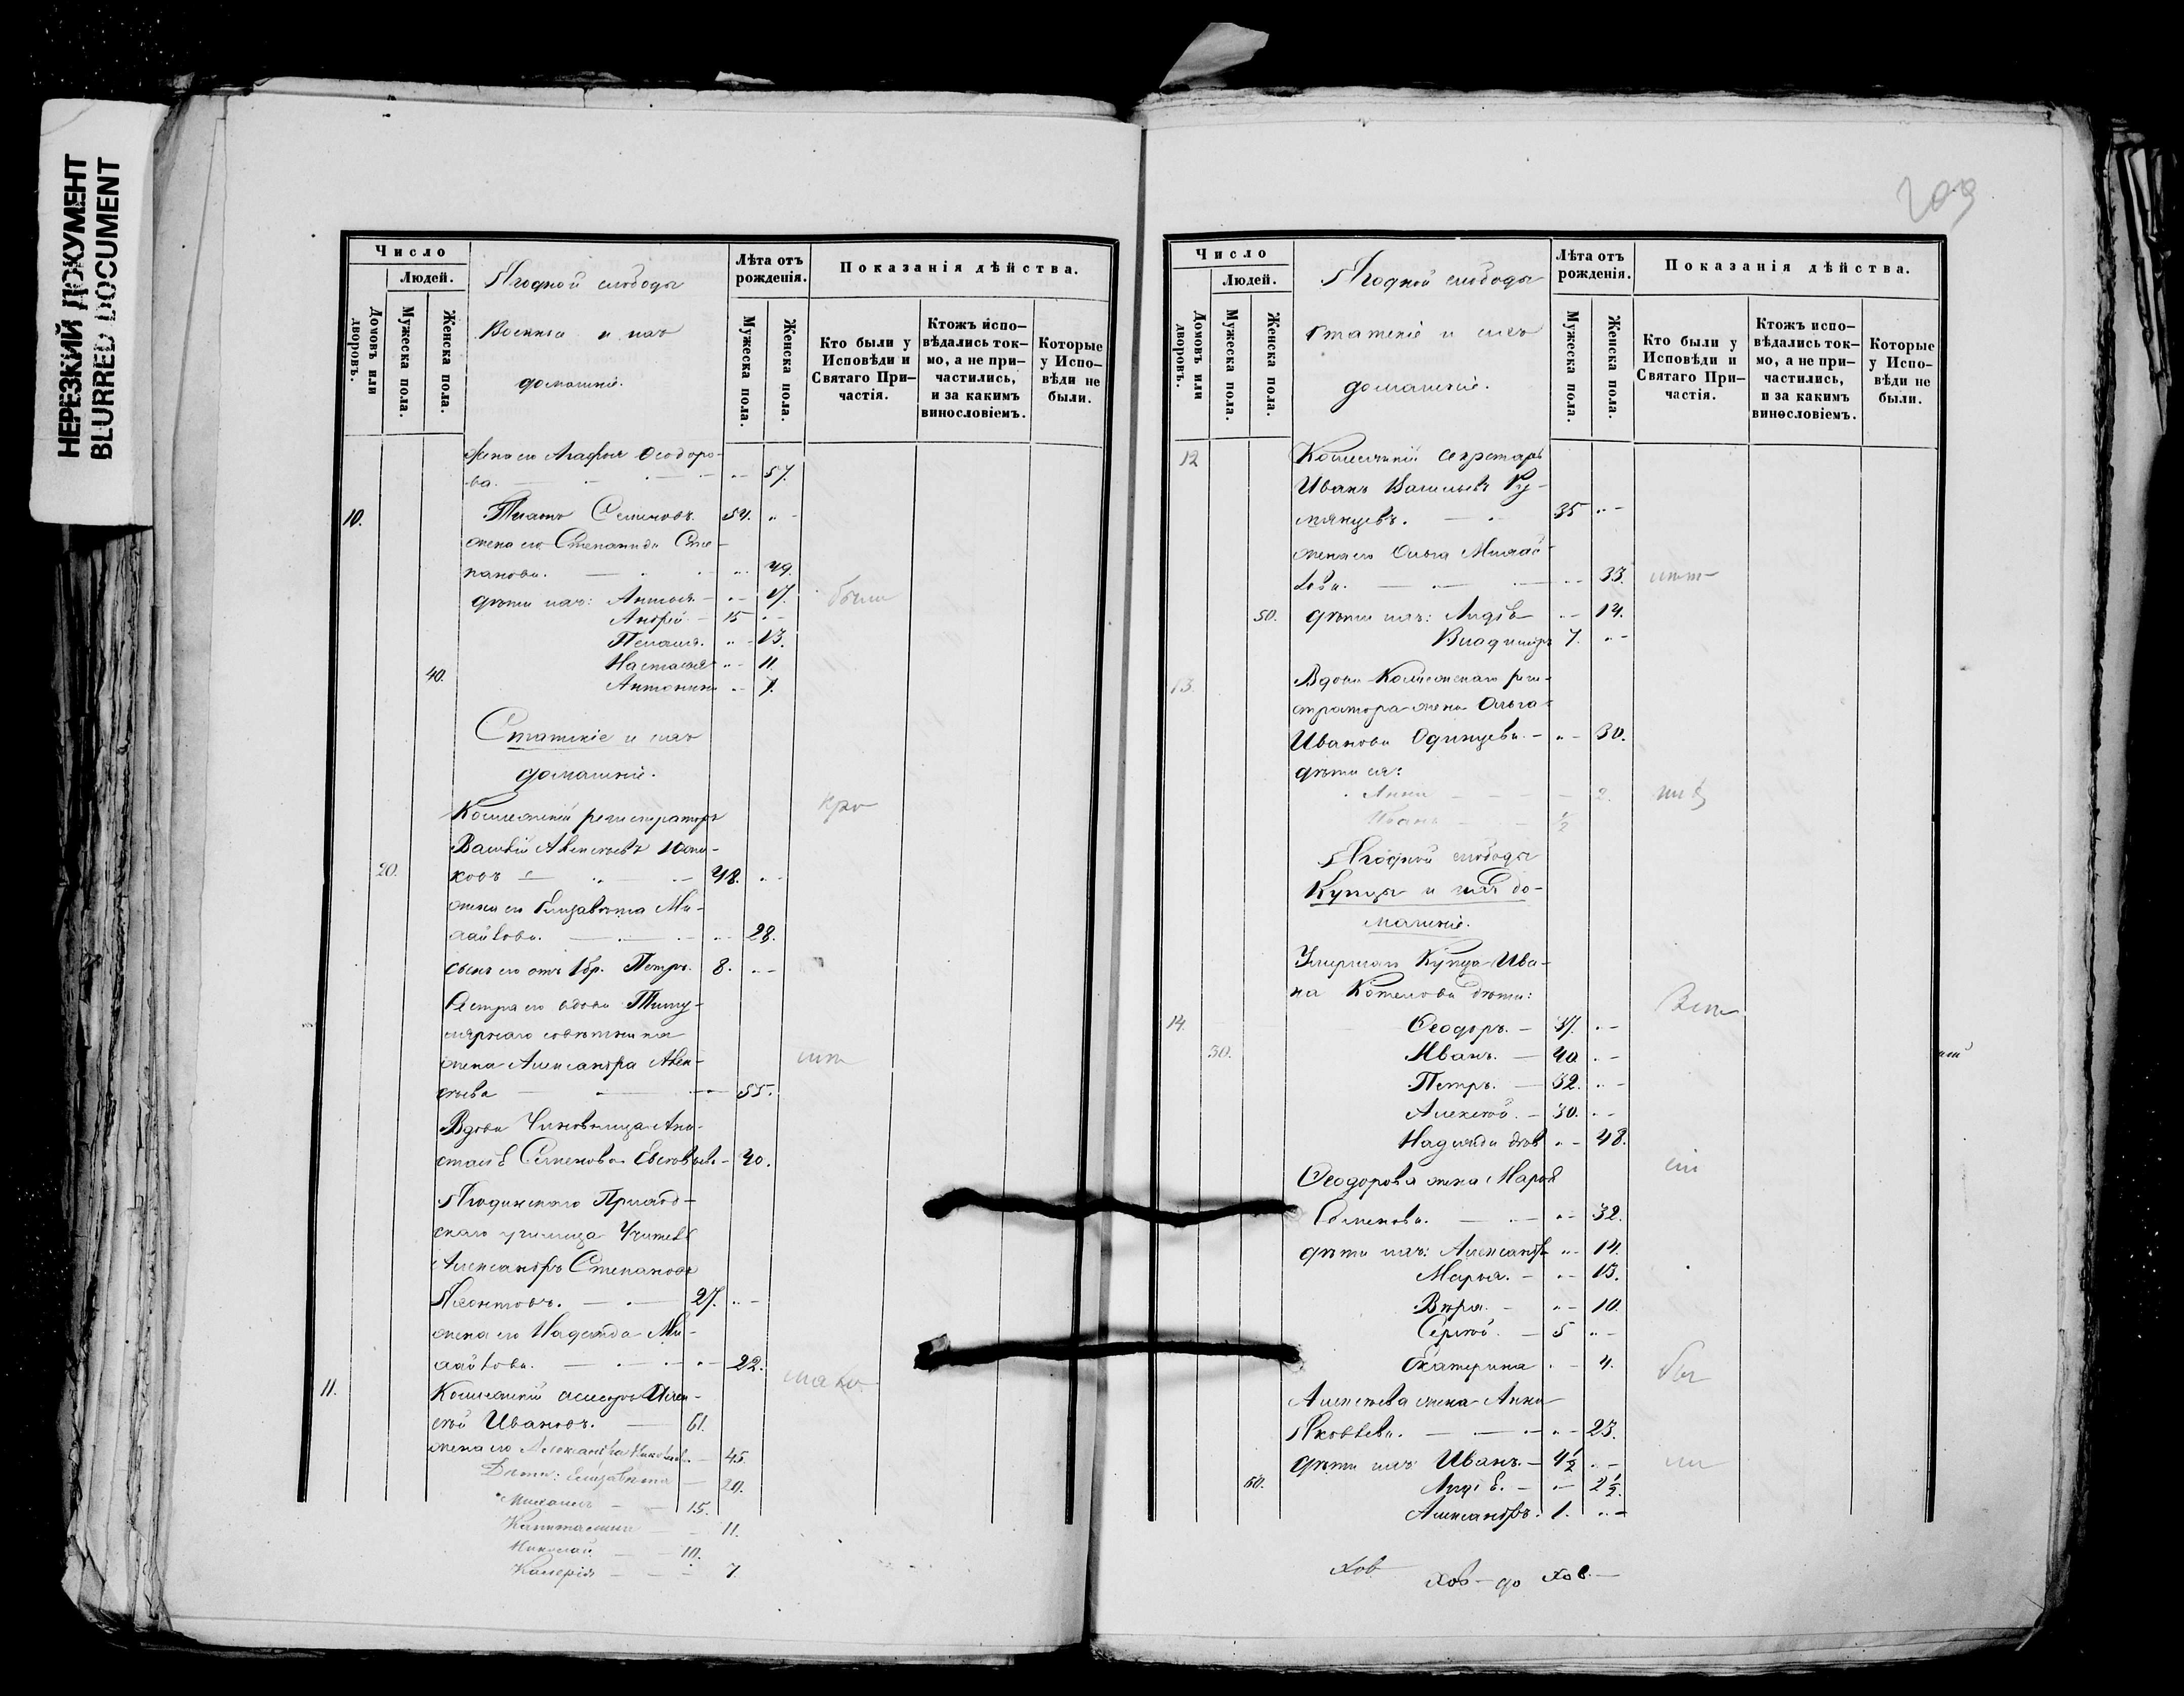 НЕРЕЗКИЙ ДОКУМЕНТ
BLURRED DOCUMENT
Число
Людей.
Домовъ или дворовъ.
Мужеска пола.
Женска пола.
Ягодной слободы
Военные и ихъ
домашніе.
Лѣта отъ рожденія.
Мужеска пола.
Женска пола.
Показанія дѣйства.
Кто были у Исповѣди и Святаго При-частія.
Ктожъ испо-вѣдались ток-мо, а не при-частились, и за какимъ винословіемъ.
Которые у Испо-вѣди не были.
жена его Агафья Ѳеодоро-
ва. 57.
10. Семеновъ. 54.
жена его Степанида Сте-
панова. 49.
дѣти ихъ: 17. были
Андрей 15
13.
Настасья 11.
40. Антонина 7.
Статскіе и ихъ
домашніе.
Коллежскій регистраторъ
Василій Алексѣевъ
20. ковъ 48.
жена его Елизавета Ми-
хайлова. 28.
сынъ его отъ 1 бр. Петръ. 8.
Сестра его вдова Титу-
лярнаго совѣтника
жена Александра Алек-
сѣева 55.
Вдова Чиновница Ана-
стасія Семенова 40.
Ягодинскаго Приход-
скаго училища Учитель
Александръ Степановъ
27.
жена его Надежда Ми-
хайлова. 22.
11. Коллежскій ассесоръ Алек-
сѣй Ивановъ. 61.
жена его Александра 45.
Дѣти: Елизавета 20.
Михаилъ 15.
Капитолина 11.
Николай 10.
Валерія 7.
209
Число
Людей.
Домовъ или дворовъ.
Мужеска пола.
Женска пола.
Ягодной слободы
Статскіе и ихъ
домашніе.
Лѣта отъ рожденія.
Мужеска пола.
Женска пола.
Показанія дѣйства.
Кто были у Исповѣди и Святаго При-частія.
Ктожъ испо-вѣдались ток-мо, а не при-частились, и за какимъ винословіемъ.
Которые у Испо-вѣди не были.
12 Коллежскій секретарь
Иванъ Васильевъ Ру-
мянцевъ. 35
жена его Ольга Михай-
лова. 33.
50. дѣти ихъ: Лидія 14.
Владиміръ 7.
13. Вдова Коллежскаго реги-
стратора жена Ольга
Иванова Одинцова. 30.
дѣти ея:
Анна 2.
Иванъ 1/2
Ягодной слободы
Купцы и ихъ до-
машніе.
Умершаго Купца Ива-
на Котелова дѣти:
14. Ѳеодоръ. 37.
30. Иванъ. 40
Петръ. 32.
Алексѣй. 30.
Надежда 48.
Ѳеодорова жена Марія
Семенова. 32.
дѣти ихъ: Александра 14.
Марья. 13.
Вѣра. 10.
Сергѣй. 5
Екатерина 4.
Алексѣева жена Анна
Яковлева. 23.
дѣти ихъ Иванъ. 4 1/2
60. Лидія. 2 1/2
Александръ. 1.